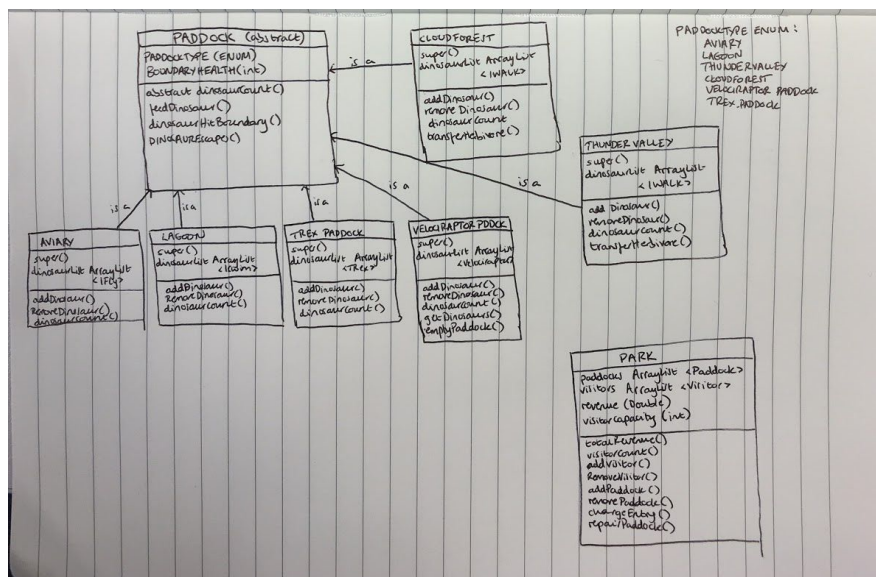 PADDOCK (abstract)
PADDOCKTYPE (ENUM)
BOUNDARYHEALTH(int)
abstract dinosaurCount()
feedDinosaur()
dinosaurHitBoundary()
DINOSAUREscapes()
is a
CLOUDFOREST
super()
dinosaurList ArrayList
<IWALK>
addDinosaur()
remove Dinosaur()
dinosaurCount
transferHerbivore()
PADDOCKTYPE ENUM:
AVIARY
LAGOON
THUNDERVALLEY
CLOUDFOREST
VELOCIRAPTOR PADDOCK
TREX.PADDOCK
THUNDERVALLEY
super()
dinosaurList ArrayList
<IWALK>
add Dinosaur()
removeDinosaur()
dinosaurCount()
transferHerbivore()
is a
is a
is a
is a
is a
AVIARY
super()
dinosaurList ArrayList
<IFly>
addDinosaur()
RemoveDinosaur()
dinosaurCount()
LAGOON
super()
dinosaurList ArrayList
addDinosaur()
RemoveDinosaur()
dinosaurCount()
TREX PADDOCK
super()
dinosaurList ArrayList
<TRex>
addDinosaur()
removeDinosaur()
dinosaurCount()
VELOCIRAPTOR PDDOCK
super()
dinosaurList ArrayList
<Velociraptor>
addDinosaur()
removeDinosaur()
dinosaurCount()
getDinosaurs()
emptyPaddock()
PARK
paddocks ArrayList <Paddock>
visitors ArrayList <Visitor>
revenue (Double)
visitorCapacity (int)
totalRevenue()
visitorCount()
addVisitor()
RemoveVisitor()
addPaddock()
removePaddock()
chargeEntry()
repairPaddock()